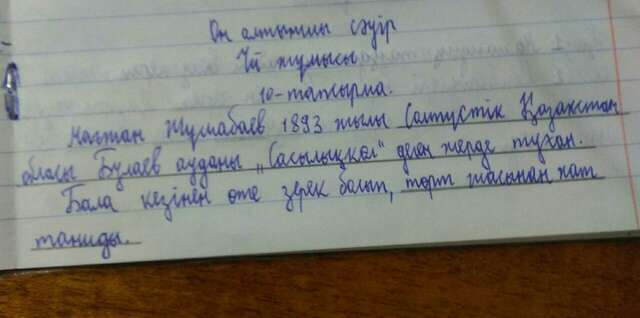 Он алтыншы сәуір
Үй жұмысы
10-тапсырма.
Мағжан Жұмабаев 1893 жылы Солтүстік Қазақстан
облысы Булаев ауданы „Сасықкөл" деген жерде туған.
Бала кезінен өте зерек болып, төрт жасынан хат
таниды.